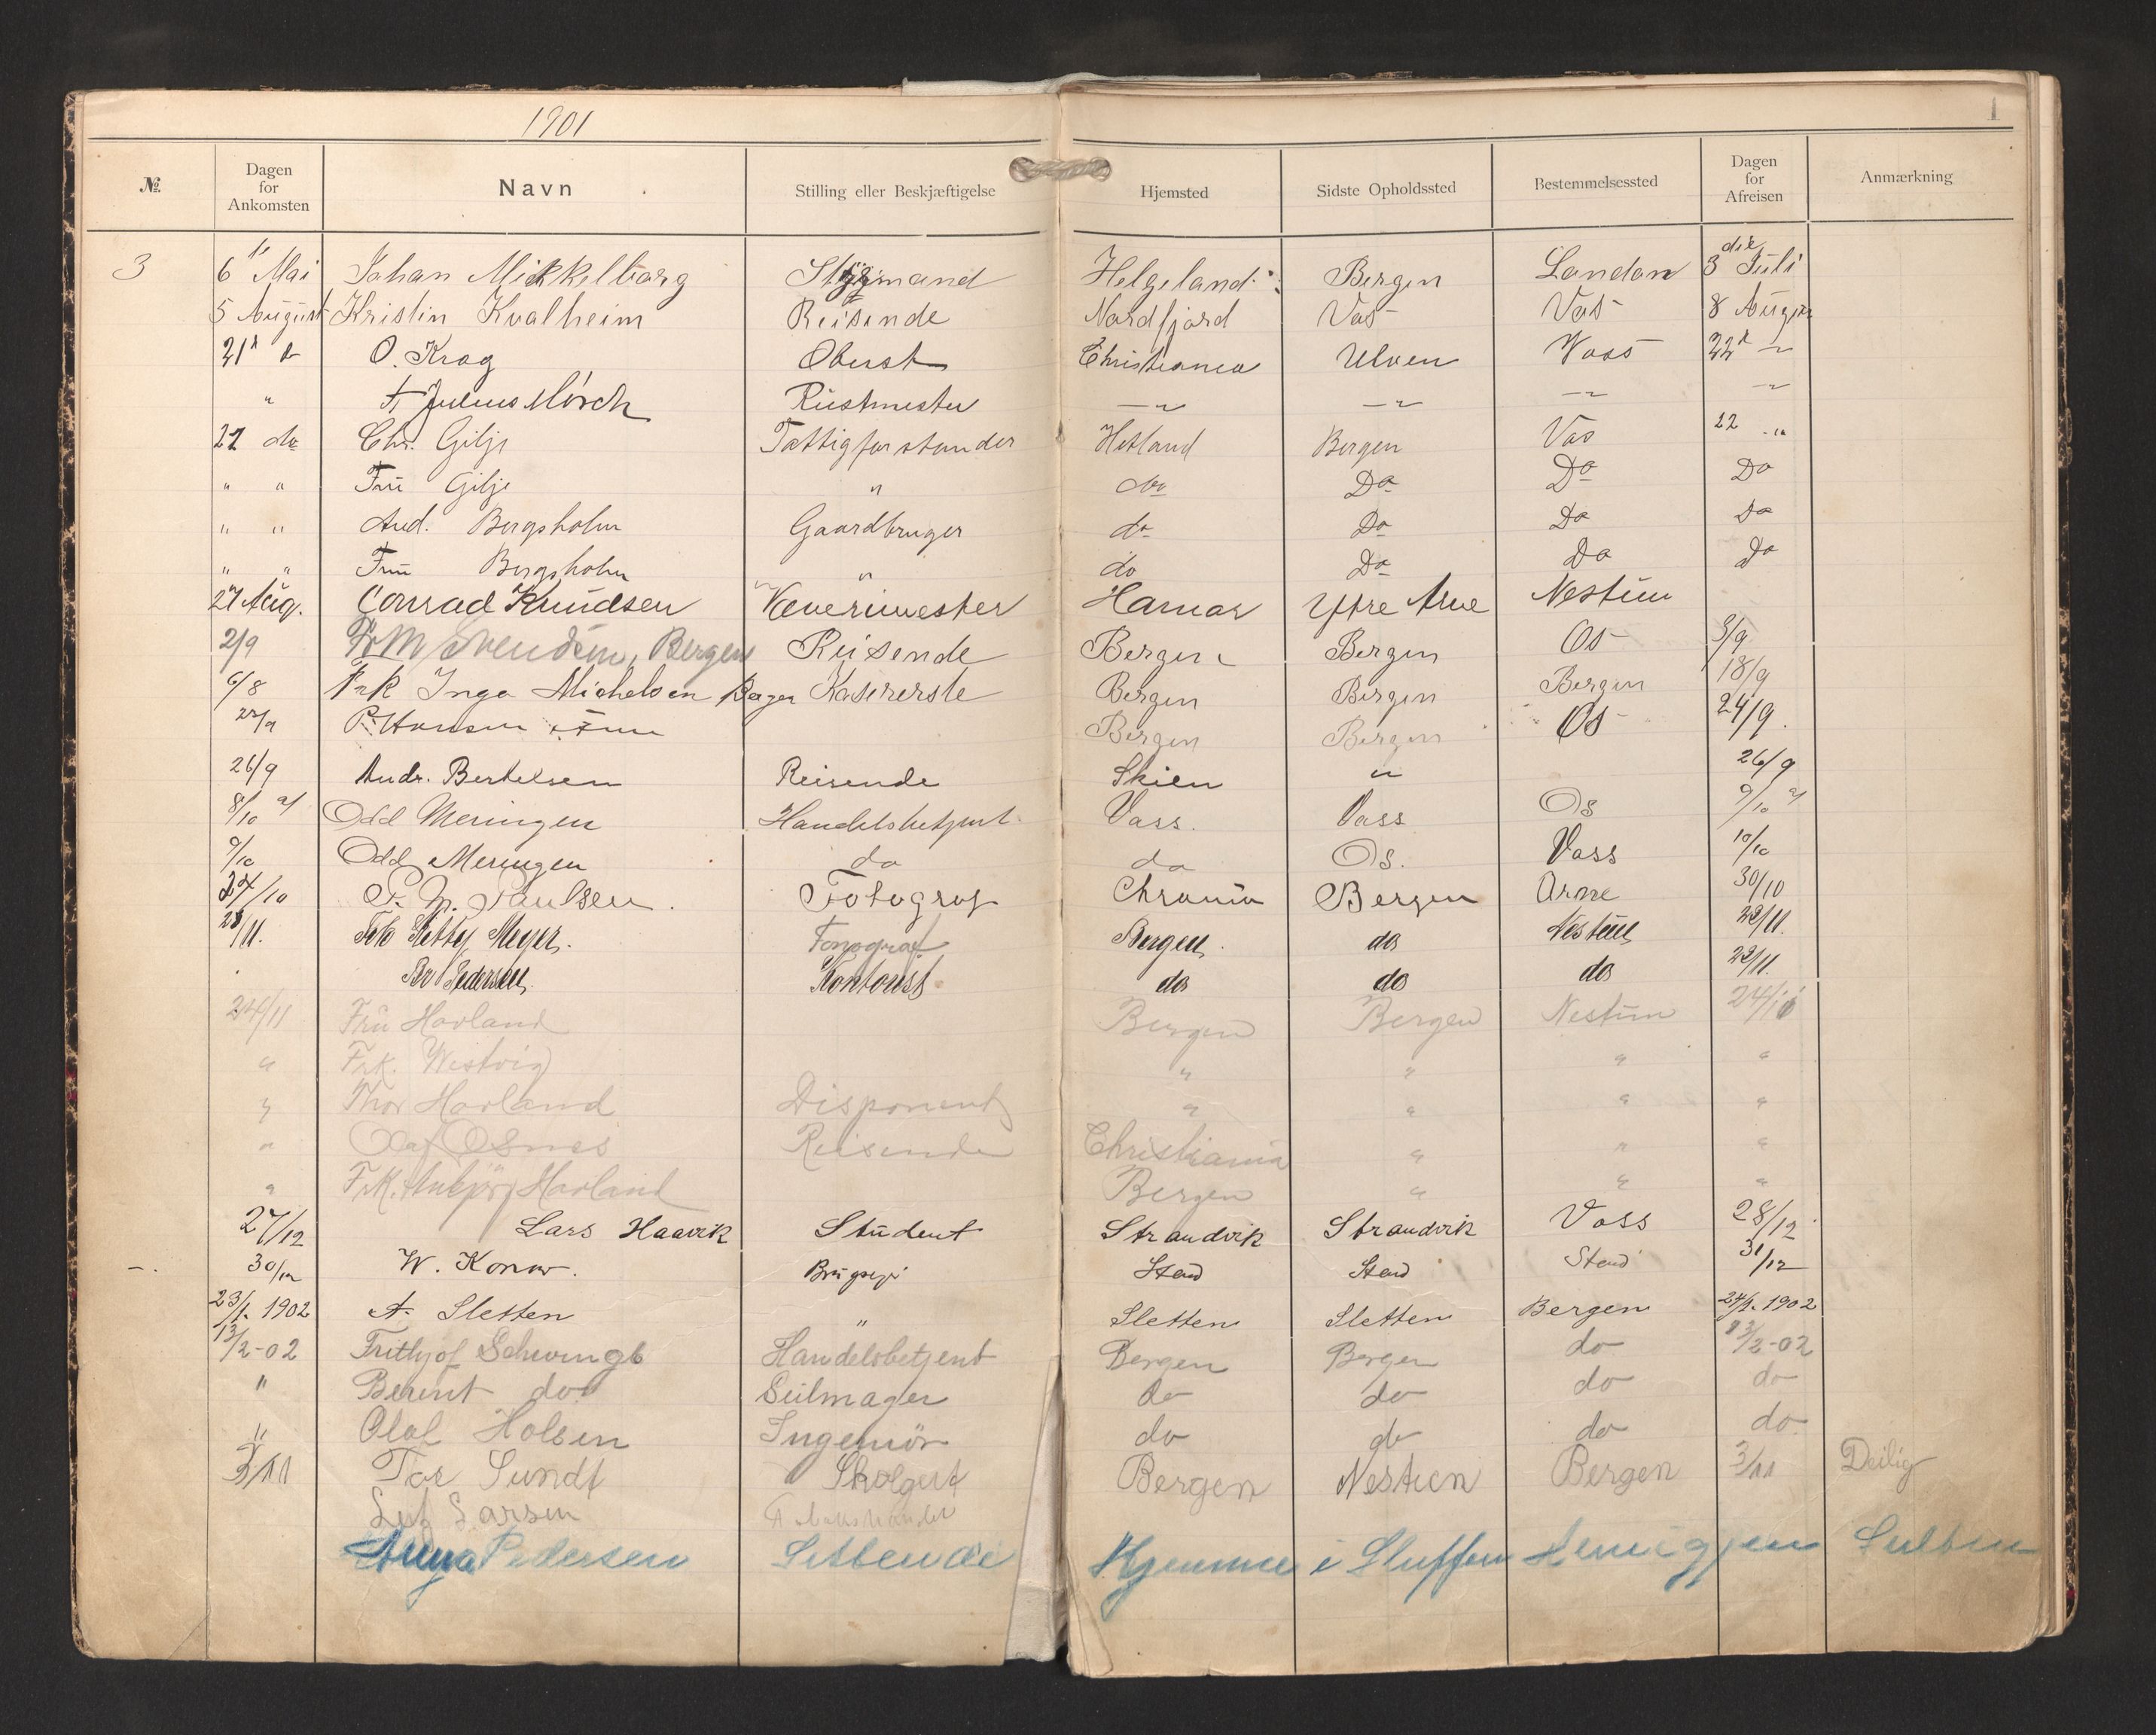 1901
1
№ Dagen for Ankomsten Navn Stilling eller Beskjæftigelse Hjemsted Sidste Opholdssted Bestemmelsessted Dagen for Afreisen Anmærkning
3 6 Mai Johan Mickkelborg Helgeland Bergen London 3 Juli
5 August Kristin Kvalheim Reisende Nordfjord Vos Vos 8 August
21 O. Krag Oberst Christiania Ulven Voss 22
" Julius Mörch Rüstmester — " — " — " — "
22 do Chr. Gilje Fattigforstander Hetland Bergen Vos 22 "
" " Frü Gilje " do Do Do Do
" " And. Bergsholm Gaardbruger do Do Do Do
" " Frü Bergsholm " do Do Do Do
27 Aug. Conrad Knudsen Væverimester Hamar Ytre Arne Nestun
2/9 Fr M Svendsen, Bergen Reisende Bergen Bergen Os 3/9
6/8 Frk Inga Michelsen Bergen Kasiererske Bergen Bergen Bergen 18/9
P. Hansen Frue Bergen Bergen Os 24/9.
26/9 Andr. Bertelsen Reisende Skien " 26/9
8/10 01 Odd Meringen Handelsbetjent Voss. Voss Os 9/10 01
9/10 Odd Meringen do do Os. Voss 10/10
P. M. Paulsen. Fotograf Bergen Arne 30/10
Betty Meyer. Fonograf Bergen. do Nestun 22/11.
Pedersen. Kontorist do do do 22/11.
24/11 Frü Havland Bergen Bergen Nestün
" Frk. Westvig " " " "
" Thor Havland Disponent " " " "
" Olaf Osnes Reisende Christiania " " "
" Frk. Anbjörg Havland Bergen " " "
27/12 Lars Haavik Student Strandvik Strandvik Voss 28/12
30/12 W. Konow. Brugseier Stend Stend Stend 31/12
23/1. 1902 A. Sletten " Sletten Sletten Bergen 24/1. 1902
13/2-02 Frithjof Handelsbetjent Bergen Bergen do 13/2-02
" Berent do Seilmager do do do do
" Olaf Holsen Ingeniör do do do do
3/11 Tor Sundt Bergen Nestun Bergen 3/11 Deilig
Larsen
Anna Pedersen Hjemme i